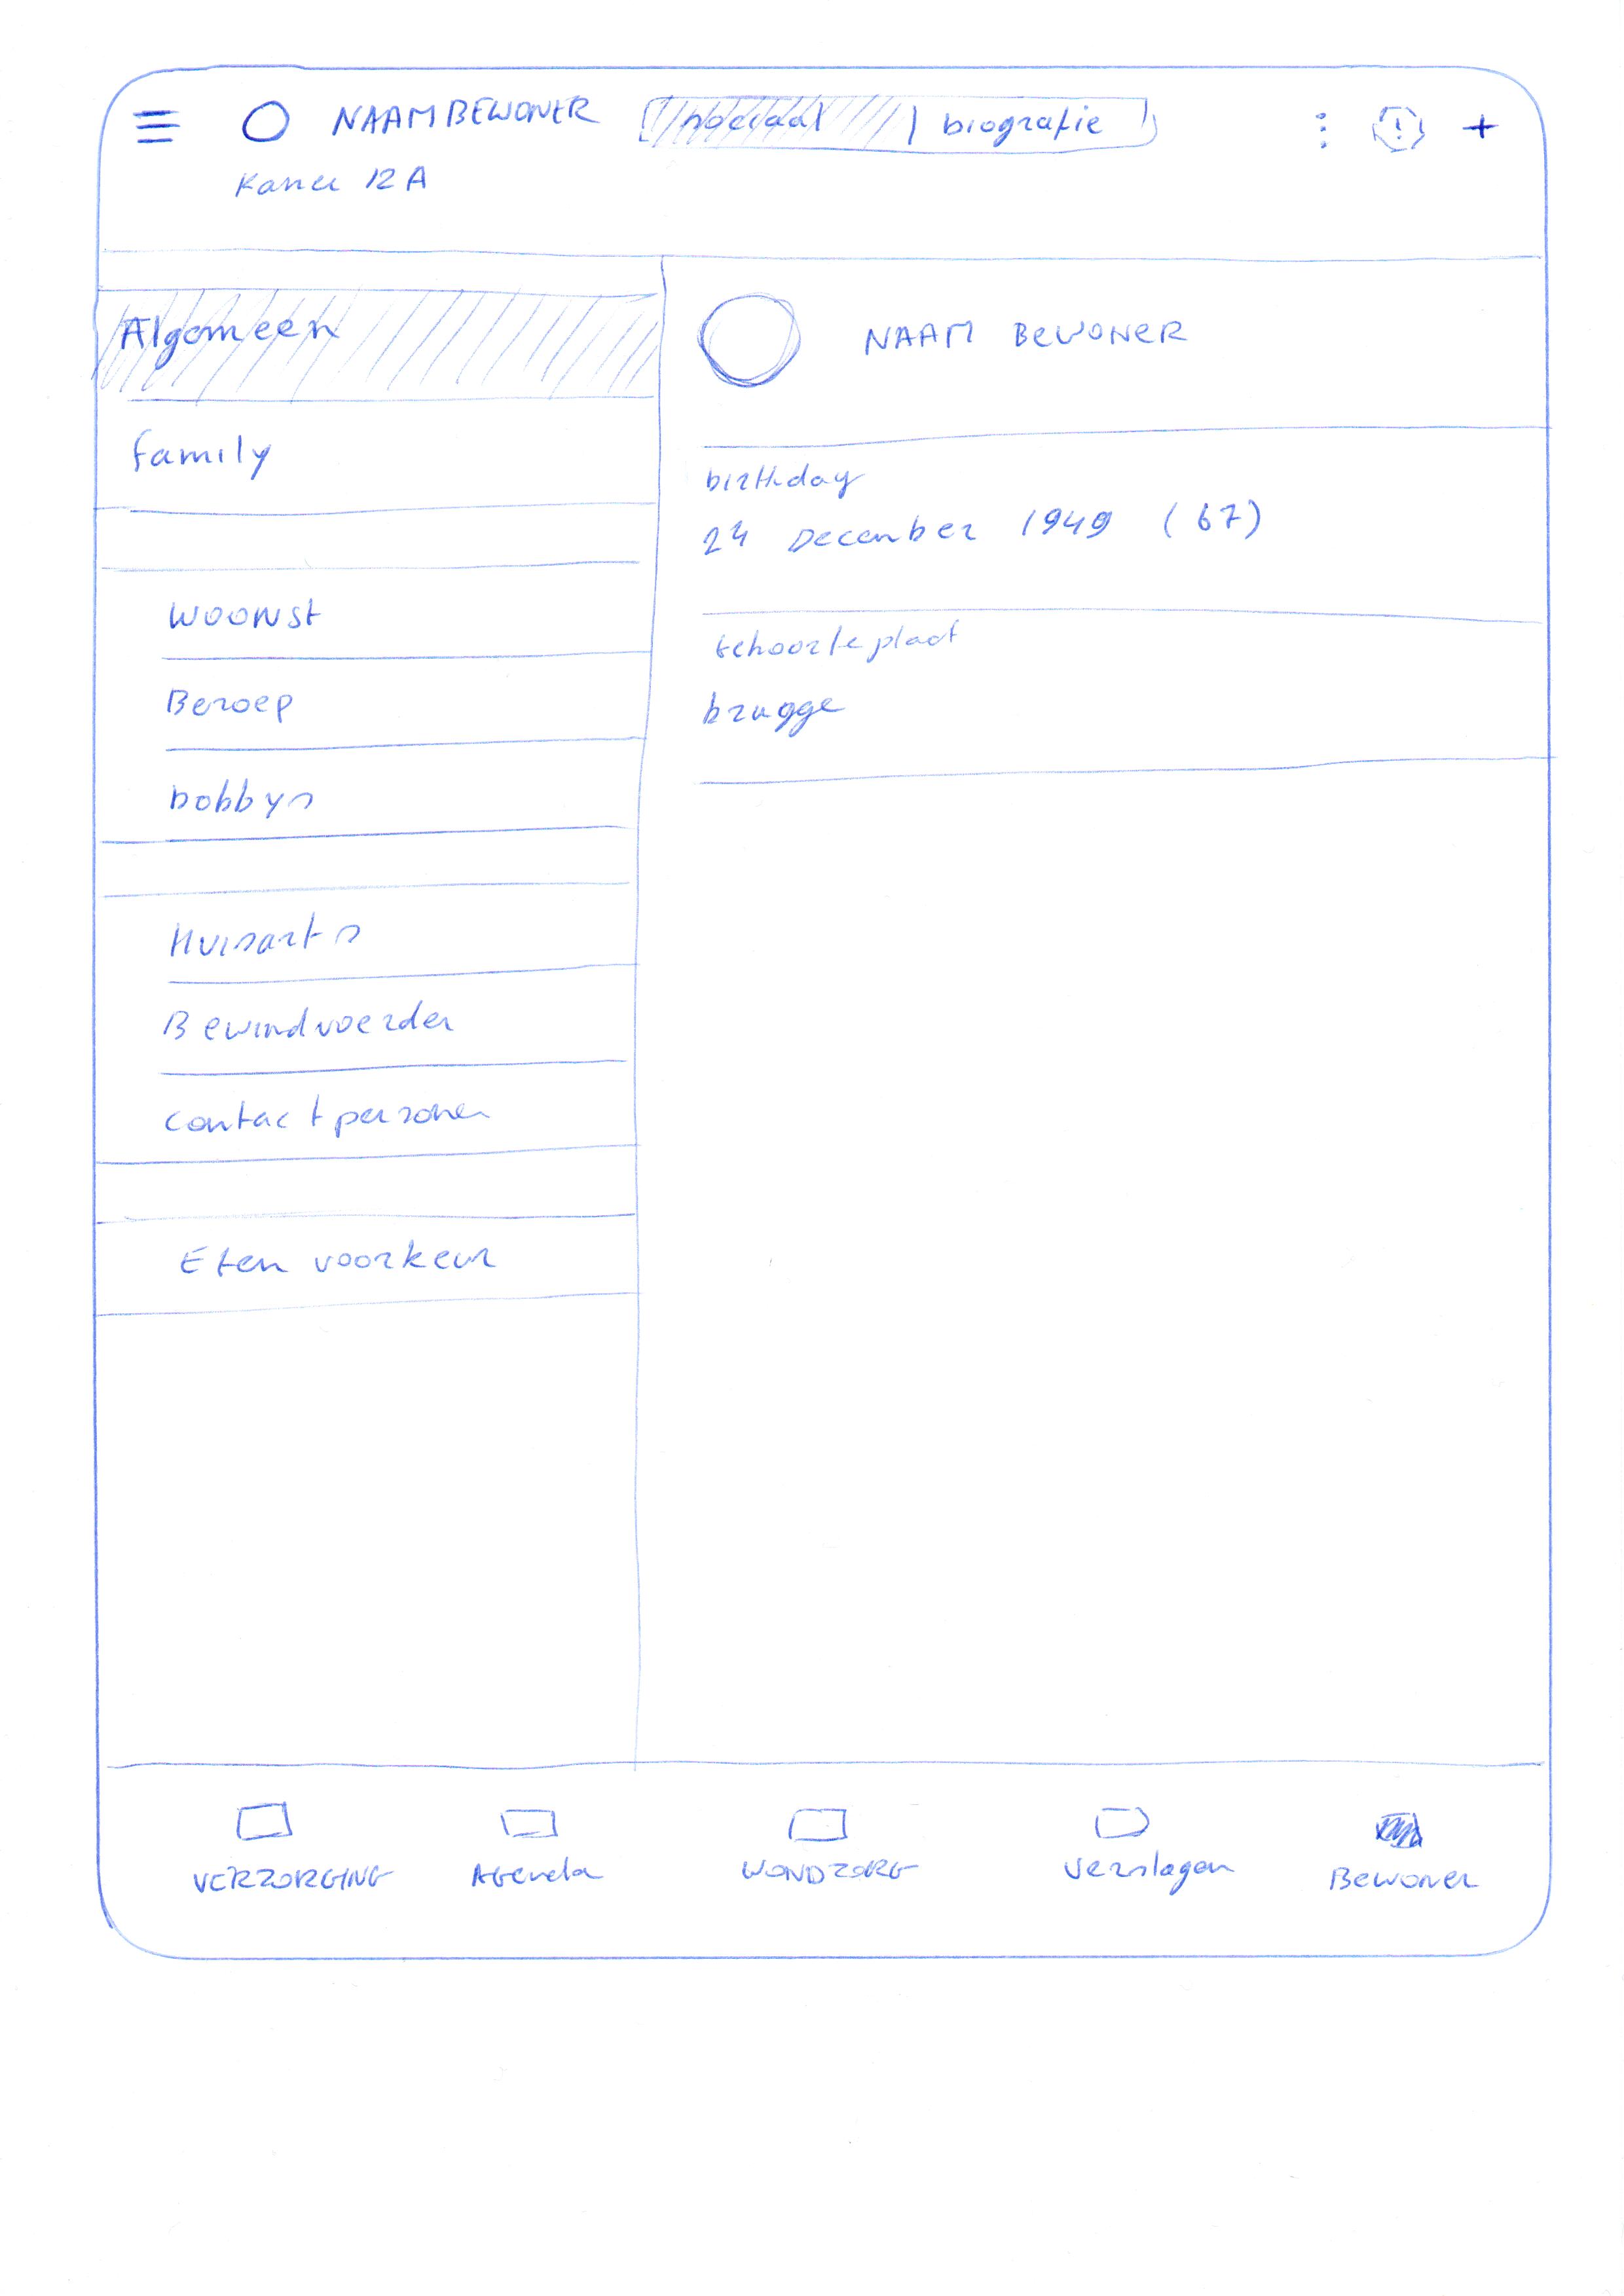 NAAM BEWONER
sociaal | biografie
Kamer 12 A
!
+
Algemeen
family
Woonst
Beroep
hobbys
Huisarts
Bewindvoerder
contactpersonen
Eten voorkeur
NAAM BEWONER
birthday
24 December 1949 (67)
brugge
VERZORGING
Agenda
WONDZORG
Verslagen
Bewoner